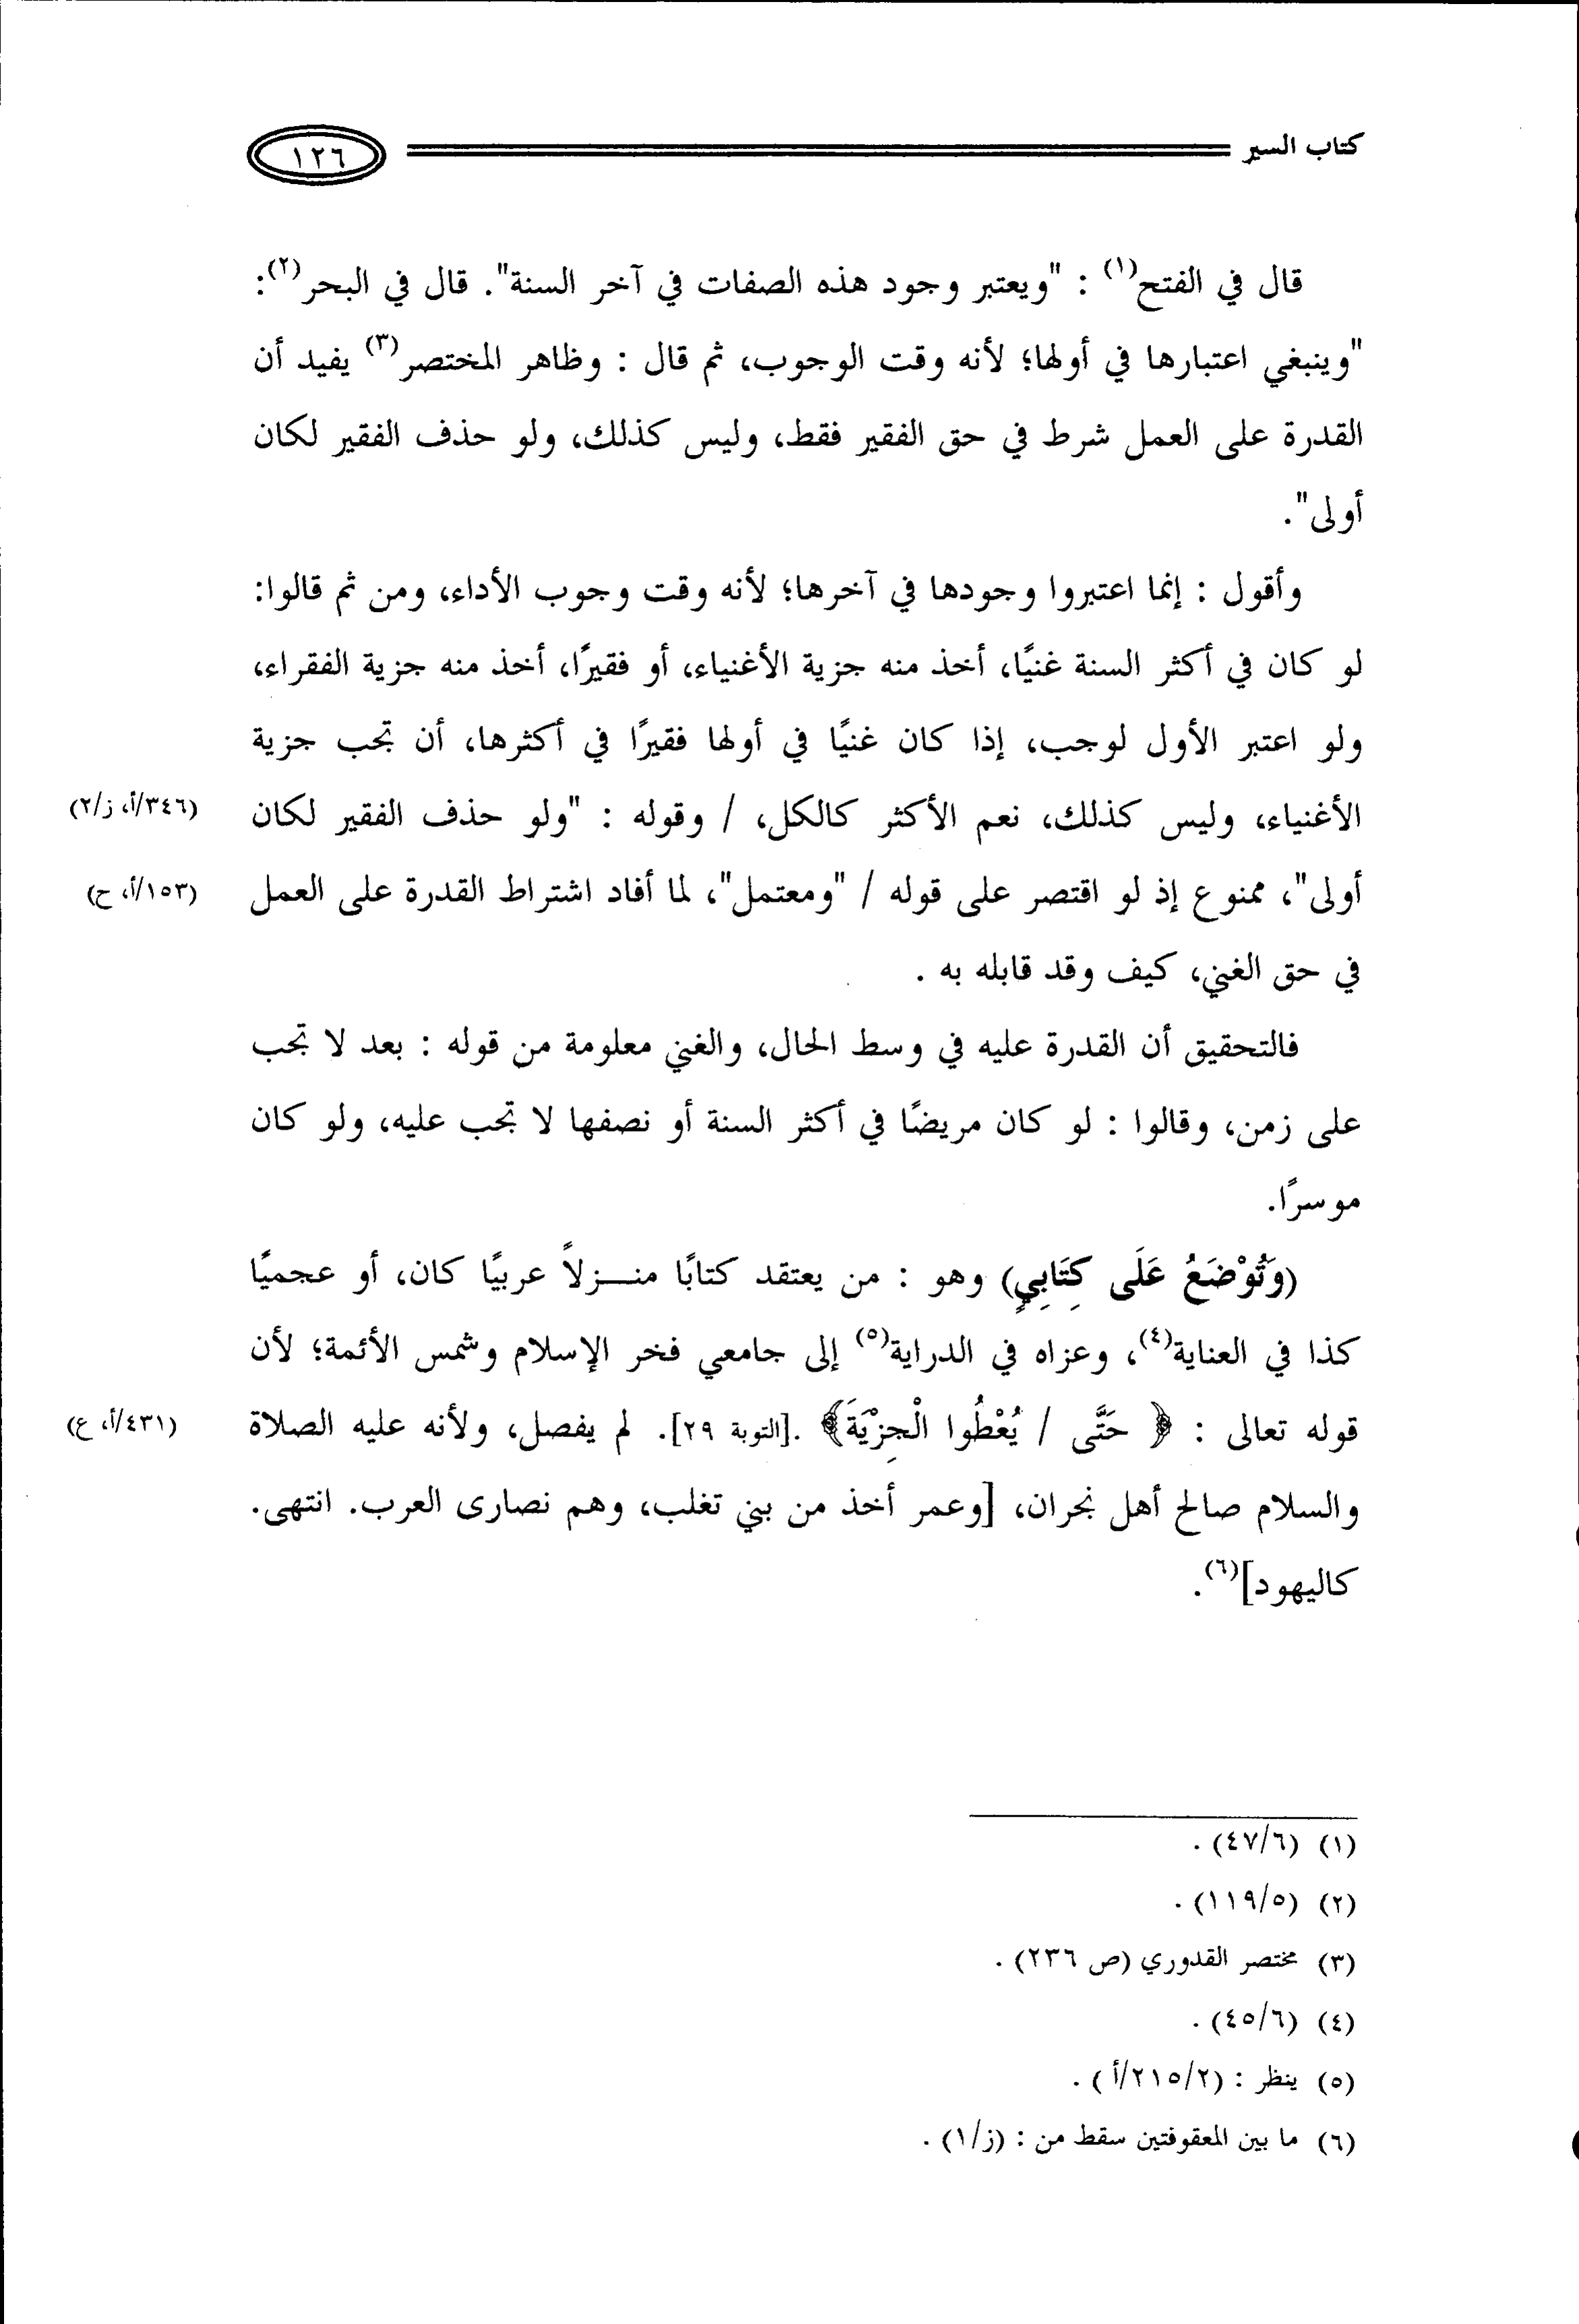 كتاب السير
١٢٦
قال في الفتح(١) : "ويعتبر وجود هذه الصفات في آخر السنة". قال في البحر(٢):
"وينبغي اعتبارها في أولها؛ لأنه وقت الوجوب، ثم قال : وظاهر المختصر(٣) يفيد أن
القدرة على العمل شرط في حق الفقير فقط، وليس كذلك، ولو حذف الفقير لكان
أولى".
وأقول : إنما اعتبروا وجودها في آخرها؛ لأنه وقت وجوب الأداء، ومن ثم قالوا:
لو كان في أكثر السنة غنيًا، أخذ منه جزية الأغنياء، أو فقيرًا، أخذ منه جزية الفقراء،
ولو اعتبر الأول لوجب، إذا كان غنيًا في أولها فقيرًا في أكثرها، أن تجب جزية
الأغنياء، وليس كذلك، نعم الأكثر كالكل، / وقوله : "ولو حذف الفقير لكان
(٣٤٦/أ، ز/٢)
أولى"، ممنوع إذ لو اقتصر على قوله / "ومعتمل"، لما أفاد اشتراط القدرة على العمل
(١٥٣/أ، ح)
في حق الغني، كيف وقد قابله به .
فالتحقيق أن القدرة عليه في وسط الحال، والغني معلومة من قوله : بعد لا تجب
على زمن، وقالوا : لو كان مريضًا في أكثر السنة أو نصفها لا تجب عليه، ولو كان
موسرًا.
(وَتُوْضَعُ عَلَى كِتَابِيٍ) وهو : من يعتقد كتابًا منـــزلاً عربيًا كان، أو عجميًا
كذا في العناية(٤)، وعزاه في الدراية(٥) إلى جامعي فخر الإسلام وشمس الأئمة؛ لأن
قوله تعالى : ﴿ حَتَّى / يُعْطُوا الْجِزْيَةَ﴾ .[التوبة ٢٩]. لم يفصل، ولأنه عليه الصلاة
(٤٣١/أ، ع)
والسلام صالح أهل نجران، [وعمر أخذ من بني تغلب، وهم نصارى العرب. انتهى.
كاليهود](٦).
(١) (٤٧/٦) .
(٢) (١١٩/٥) .
(٣) مختصر القدوري (ص ٢٣٦) .
(٤) (٤٥/٦) .
(٥) ينظر : (٢١٥/٢/أ ) .
(٦) ما بين المعقوفتين سقط من : (ز/١) .